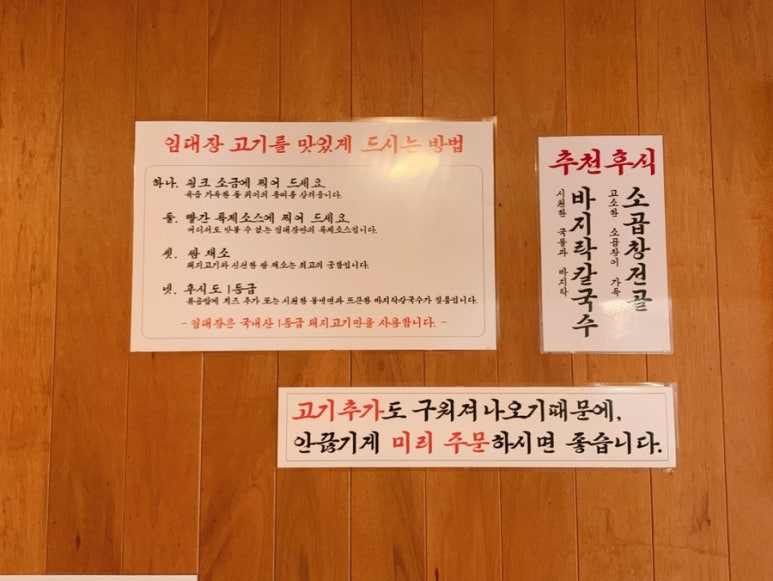 임대장 고기를 맛있게 드시는 방법
하나. 핑크 소금에 찍어 드세요.
육즙 가득한 돌 위어의 풍미를 상의줍니다.
둘. 빨간 특제소스에 찍어 드세요.
어디서도 맛볼 수 없는 임대장만의 특제소스입니다.
셋. 쌈 채소
돼지고기와 신선한 쌈 채소는 최고의 궁합입니다.
넷. 후식도 1등급
볶음밥에 치즈 추가 또는 시원한 물냉면과 뜨끈한 바지락칼국수가 일품입니다.
- 임대장은 국내산 1등급 돼지고기만을 사용합니다. -
추천후식
소곱창전골
고소한 소곱창이 가득
바지락칼국수
시원한 국물과 바지락
고기추가도 구워져나오기때문에,
안끊기게 미리 주문하시면 좋습니다.